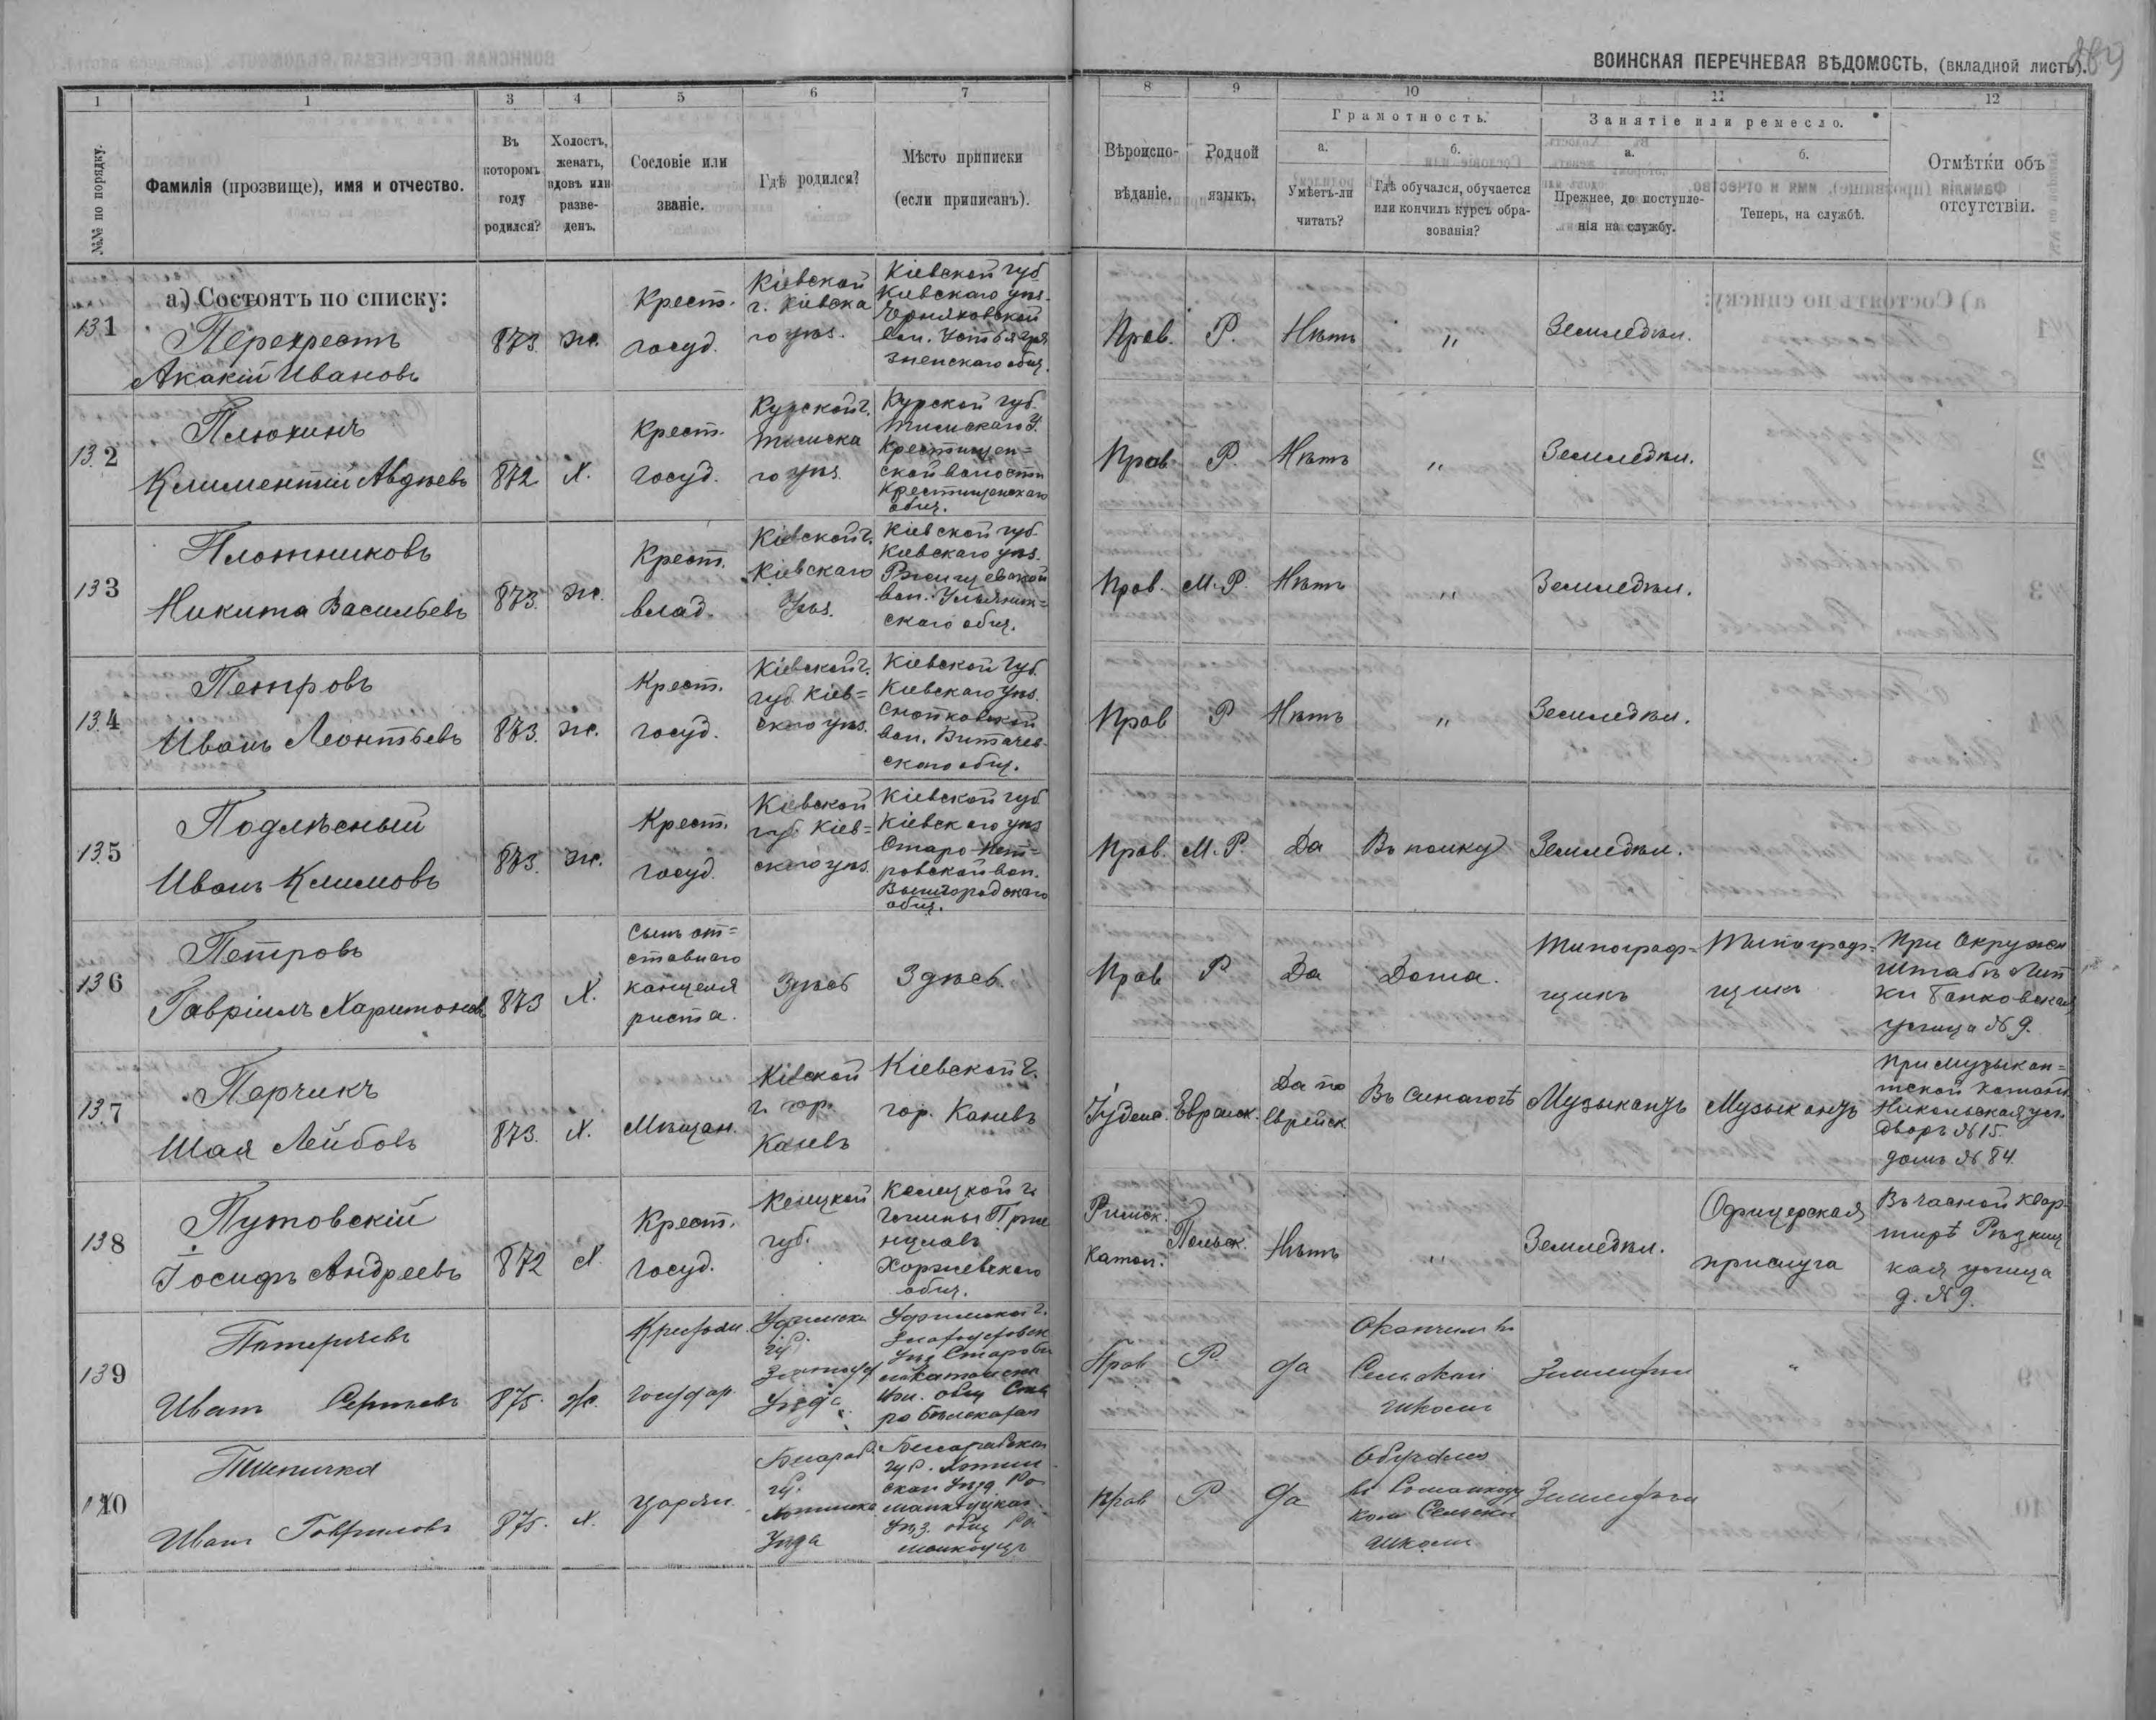 ВОИНСКАЯ ПЕРЕЧНЕВАЯ ВѢДОМОСТЬ, (вкладной листъ).
1 1 3 4 5 6 7 8 9 10 11 12
№№ по порядку.
Фамилія (прозвище), имя и отчество.
Въ которомъ году родился?
Холостъ, женатъ, вдовъ или разведенъ.
Сословіе или званіе.
Гдѣ родился?
Мѣсто приписки (если приписанъ).
Вѣроисповѣданіе.
Родной языкъ.
Грамотность.
а. Умѣетъ-ли читать?
б. Гдѣ обучался, обучается или кончилъ курсъ образованія?
Занятіе или ремесло.
а. Прежнее, до поступленія на службу.
б. Теперь, на службѣ.
Отмѣтки объ отсутствіи.
а) Состоятъ по списку:
131
Перехрестъ
Акакій Ивановъ
873. ж.
Крест.
госуд.
Кіевской
г. Кіевска
го уѣз.
Кіевской губ
Кіевскаго уѣз.
Черняховской
вол.
общ.
Прав. Р. Нѣтъ " Земледѣл.
132
Плюхинъ
Климентій Авдѣевъ
872 Х.
Крест.
госуд.
Курской г.
Тимска
го уѣз.
Курской губ.
Тимскаго У.
Крестищен=
ской волости
Крестищенскаго
общ.
Прав Р. Нѣтъ " Земледѣл.
133
Плотниковъ
Никита Васильевъ
873. ж.
Крест.
влад.
Кіевской г.
Кіевскаго
Уѣз.
Кіевской губ.
Кіевскаго уѣз.
Ржищевской
вол. Ульяник=
скаго общ.
Прав. М.Р. Нѣтъ " Земледѣл.
134
Петровъ
Иванъ Леонтьевъ
873. ж.
Крест.
госуд.
Кіевской г.
губ Кіев=
скаго уѣз.
Кіевской Губ.
Кіевскаго уѣз.
вол. Витачев-
скаго общ.
Прав Р Нѣтъ " Земледѣл.
135
Подлѣсный
Иванъ Климовъ
873. ж.
Крест.
госуд.
Кіевской
губ. Кіев=
скаго уѣз.
Кіевской губ
Кіевскаго уѣз
Старо-Пет=
ровской вол.
Вышгородскаго
общ.
Прав. М.Р. Да Въ полку Земледѣл.
136
Петровъ
Гавріилъ Харитоновъ
873 Х.
Сынъ от=
ставнаго
канцеля
риста.
Здѣсь Здѣсь.
Прав Р Да Дома.
Типограф=
щикъ
Типограф=
щикъ
При Окружн
Штабѣ Лип
ки Банковская
улица № 9.
137
Перчикъ
Шая Лейбовъ
873. Х. Мѣщан.
Кіевской
г. гор.
Каневъ
Кіевской г.
гор. Каневъ
Іудейс. Еврейск.
Да по
Еврейск.
Въ синагогѣ Музыкантъ Музыкантъ
При музыкан=
тской команд
Никольская ул.
дворъ № 15.
домъ № 84.
138
Путовскій
Іосифъ Андреевъ
872 Х.
Крест.
госуд.
Келецкой
губ.
Келецкой г.
гмины
общ.
Римск.
Катол.
Польск. Нѣтъ " Земледѣл.
Офицерская
прислуга
Въ частной квар
тирѣ Рѣзниц
кая улица
д. № 9.
139
Иванъ Сергѣевъ
875. ж.
Крестьян.
государ.
Уфимска
гу.
Златоуст
Уѣзда
Уфимской г.
Златоустовск
Уѣз. Старобѣ
локатайска
Прав Р. да
Окончилъ въ
Сельской
школѣ
Земледѣл "
140
Пшеничка
Иванъ Гавриловъ
875. х. царян.
Бесараб.
гу.
Хотинска
Уѣзда
Бесарабской
губ. Хотин
ской Уѣзд. Ро
манкоуцкая
общ Ро
манкоуцъ
прав Р да
Обучался
въ Романкоуц
кой Сельской
школѣ
Земледѣл